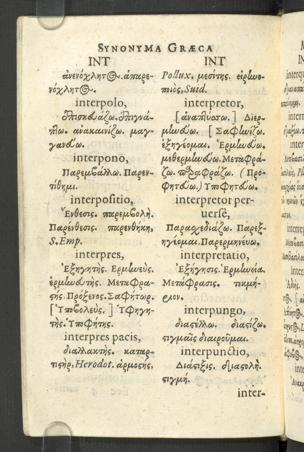 SYNONYMA GRÆCA
INT
ἀνενόχλητος. ἀπαρε-
νόχλητος.
interpolo,
ἐπισκευάζω. ἐπιγνά-
πτω. ἀνακαινίζω. μαγ-
γανεύω.
interpono,
Παρεμβάλλω. Παρεν-
τίθημι.
interpositio,
Ἔνθεσις. παρεμβολή.
Παρένθεσις. παρενθήκη,
S. Emp.
interpres,
Ἐξηγητής. Ἑρμηνεύς.
ἑρμηνευτής. Μεταφρα-
στής. Πρόξενος. Σαφήτωρ.
[Ὑποβολεύς.] Ὑφηγη-
τής. Ὑποφήτης.
interpres pacis,
διαλλακτής. καταρ-
τιστήρ, Herodot. ἁρμοστής.
INT
Pollux. μεσίτης. εἰρηνο-
ποιός, Suid.
interpretor,
[ἀναπτύσσω.] Διερ-
μηνεύω. [Σαφηνίζω.
ἐξηγέομαι. Ἑρμηνεύω.
μεθερμηνεύω. Μεταφρά-
ζω. παραφράζω. (Προ-
φητεύω.) Ὑποφητεύω.
interpretor per-
uersè,
Παραχειάζω. Παρεξ-
ηγέομαι. Παρερμηνεύω.
interpretatio,
Ἐξήγησις. Ἑρμηνεία.
Μετάφρασις. τεκμή-
ριον.
interpungo,
διαστέλλω. διαστίζω.
στιγμαῖς διαιροῦμαι.
interpunctio,
Διάστιξις. διαστολή.
στιγμή.
inter-